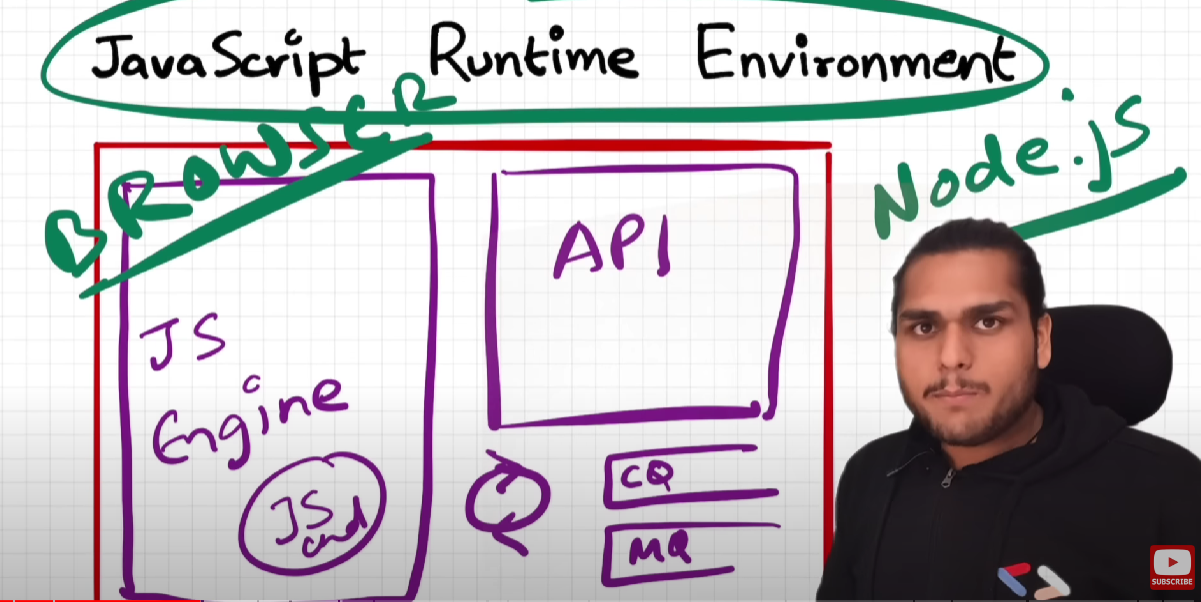 JavaScript Runtime Environment
BROWSER
Node.js
API
JS
Engine
JS
CQ
MQ
SUBSCRIBE